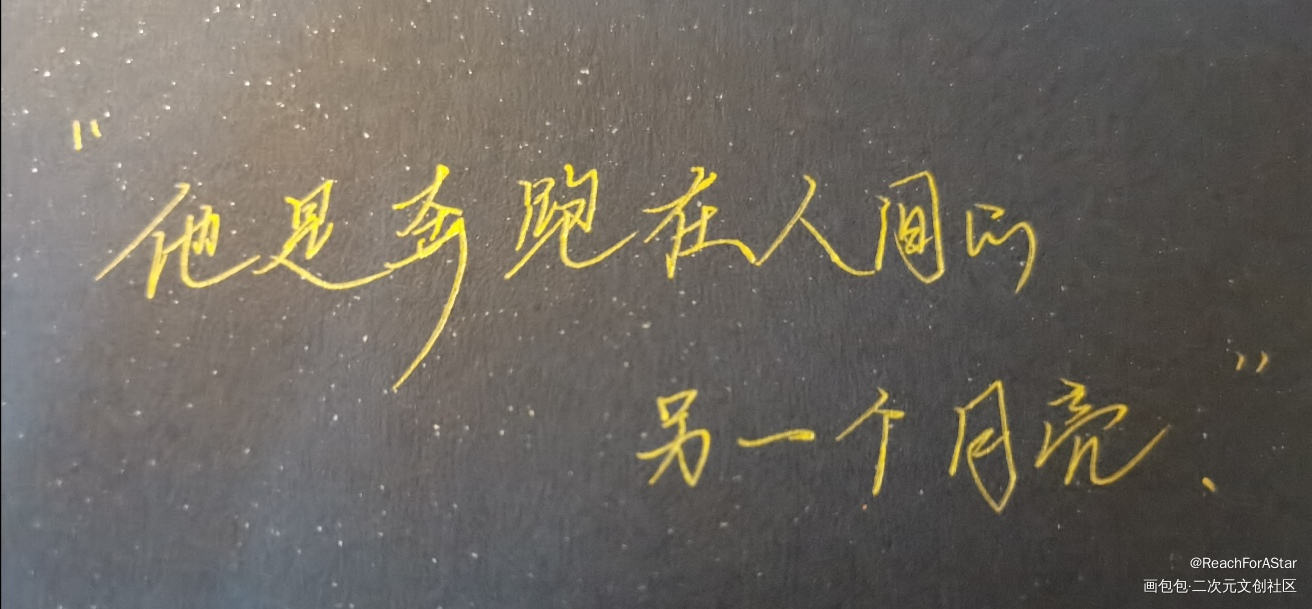 "他是奔跑在人间的
另一个月亮、"
@ReachForAStar
画包包·二次元文创社区